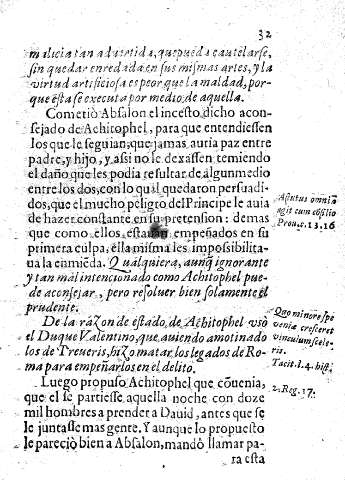 32
malicia tan aduertida, que pueda cautelarse,
sin quedar enredada en sus mismas artes, y la
virtud artificiosa es peor que la maldad, por-
que esta se executa por medio de aquella.
Cometiò Absalon el incesto, dicho acon-
sejado de Achitophel, para que entendiessen
los que le seguian, que jamas auria paz entre
padre, y hijo, y assi no le dexassen temiendo
el daño que les podia resultar de algun medio
entre los dos, con lo qual quedaron persuadi-
dos, que el mucho peligro del Principe le auia
de hazer constante en su pretension: demas
que como ellos estauan empeñados en su
primera culpa, ella misma les impossibilita-
ua la enmiẽda. Qualquiera, aunq̃ ignorante
y tan mal intencionado como Achitophel pue-
de aconsejar, pero resoluer bien solamente el
prudente.
De la razon de estado, de Achitophel vsò
el Duque Valentino, que auiendo amotinado
los de Treueris, hizo matar los legados de Ro-
ma para empeñarlos en el delito.
Luego propuso Achitophel que cõuenia,
que el se partiesse aquella noche con doze
mil hombres a prender a Dauid, antes que se
le juntasse mas gente. Y aunque lo propuesto
le pareciò bien a Absalon, mandò llamar pa-
ra esta
Astutus omnia
agit cum cõsilio
Prou.c.13.16
Quo minore spe
veniæ cresceret
vinculum scele-
ris.
Tacit.l.4. hist.
2. Reg. 17.